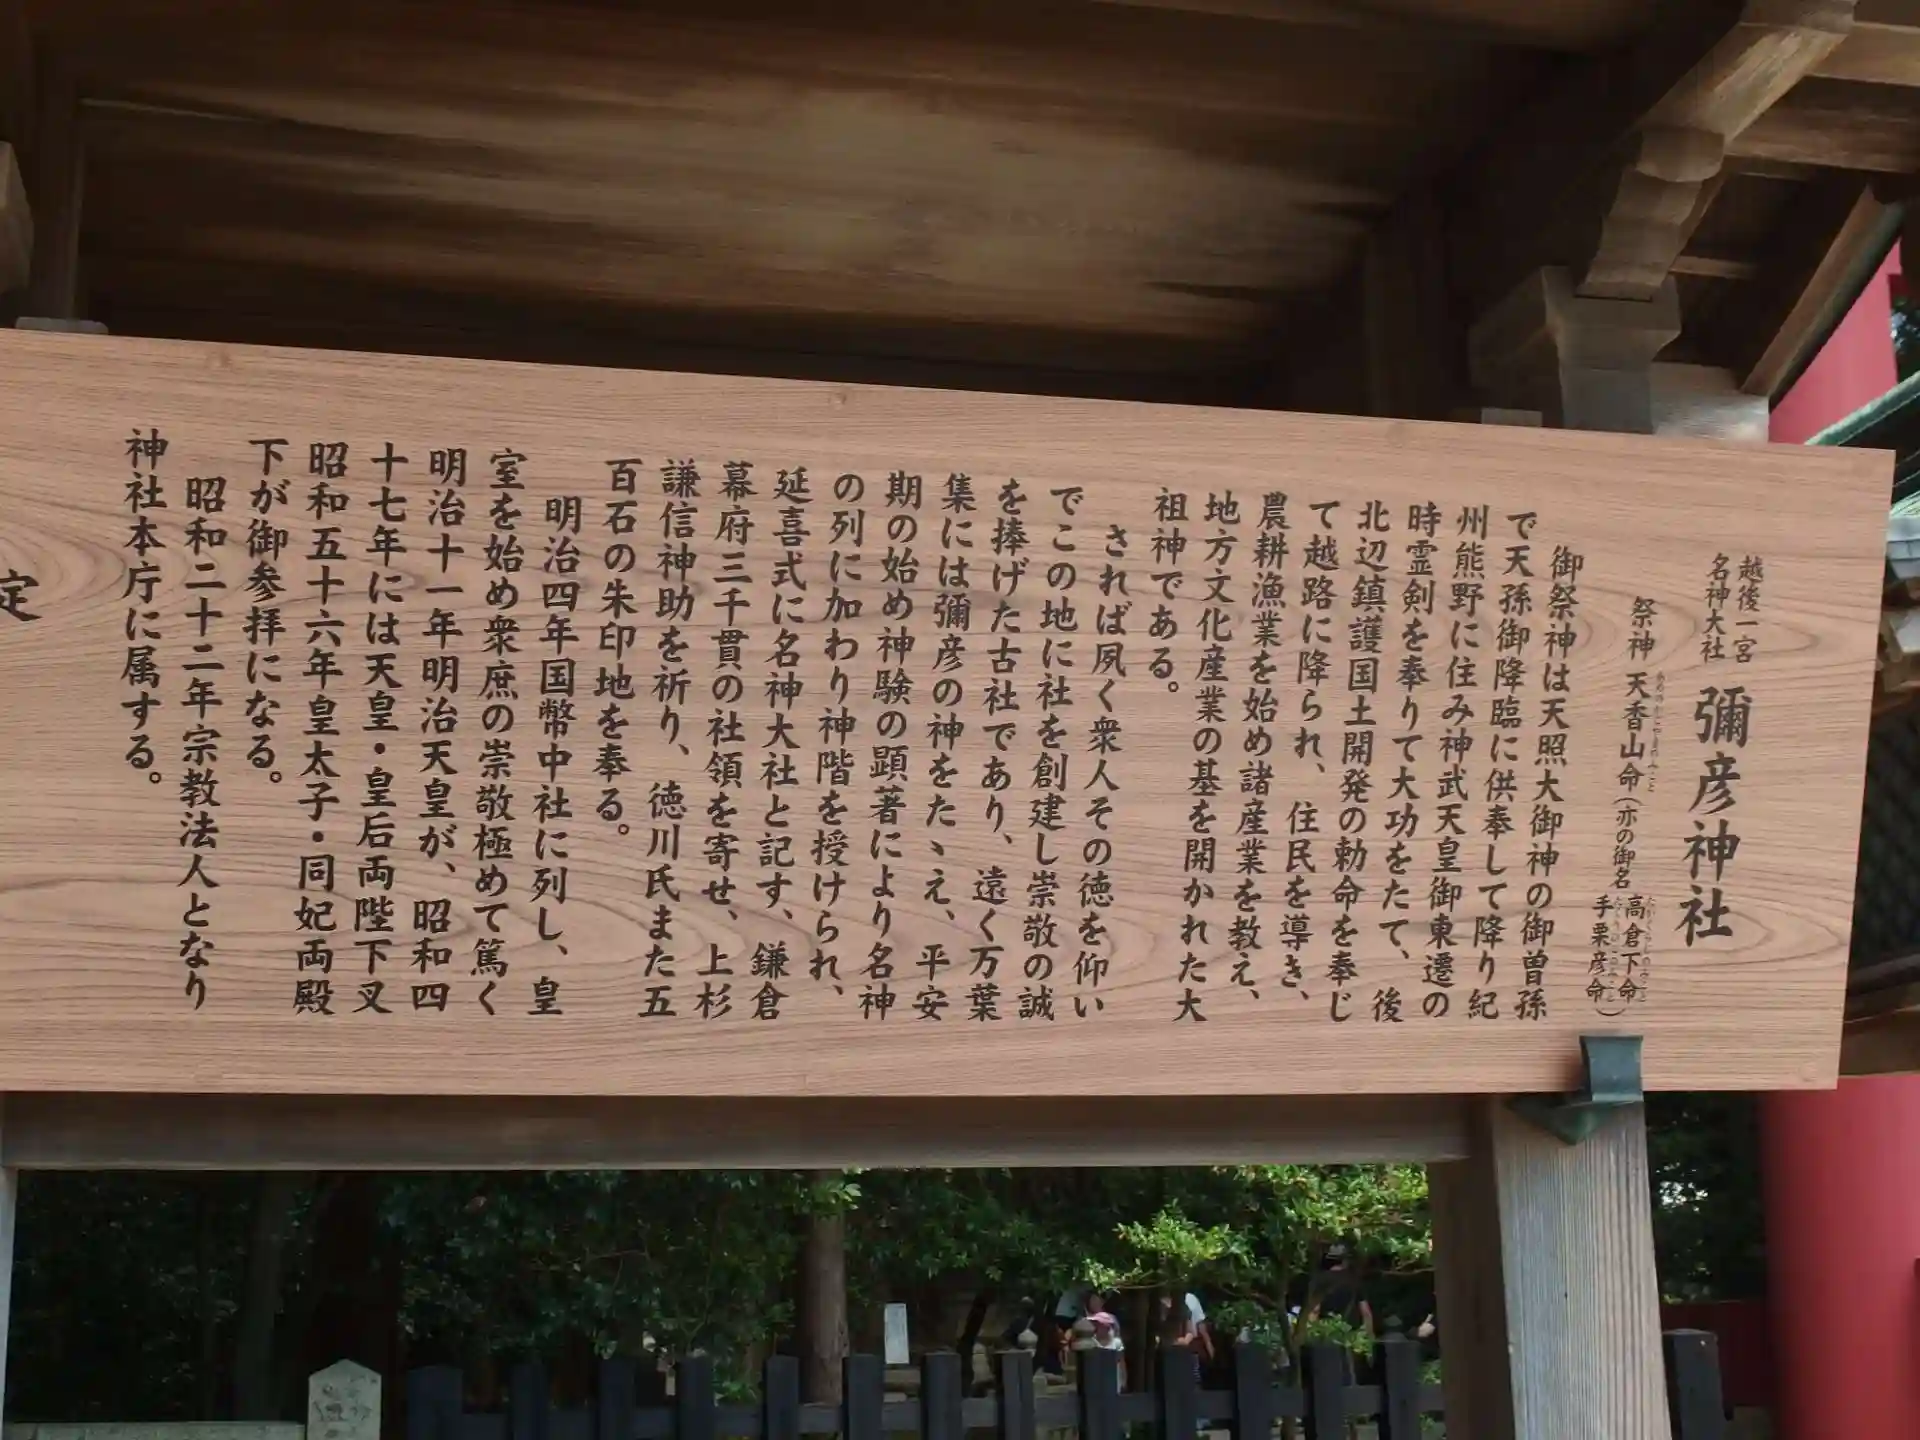 越後一宮
名神大社
彌彦神社
祭神 天香山命(亦の御名 高倉下命
手栗彦命)
御祭神は天照大御神の御曽孫
で天孫御降臨に供奉して降り紀
州熊野に住み神武天皇御東遷の
時霊剣を奉りて大功をたて、後
北辺鎮護国土開発の勅命を奉じ
て越路に降られ、住民を導き、
農耕漁業を始め諸産業を教え、
地方文化産業の基を開かれた大
祖神である。
されば夙く衆人その徳を仰い
でこの地に社を創建し崇敬の誠
を捧げた古社であり、遠く万葉
集には彌彦の神をたゝえ、平安
期の始め神験の顕著により名神
の列に加わり神階を授けられ、
延喜式に名神大社と記す、鎌倉
幕府三千貫の社領を寄せ、上杉
謙信神助を祈り、徳川氏また五
百石の朱印地を奉る。
明治四年国幣中社に列し、皇
室を始め衆庶の崇敬極めて篤く
明治十一年明治天皇が、昭和四
十七年には天皇・皇后両陛下又
昭和五十六年皇太子・同妃両殿
下が御参拝になる。
昭和二十二年宗教法人となり
神社本庁に属する。
定